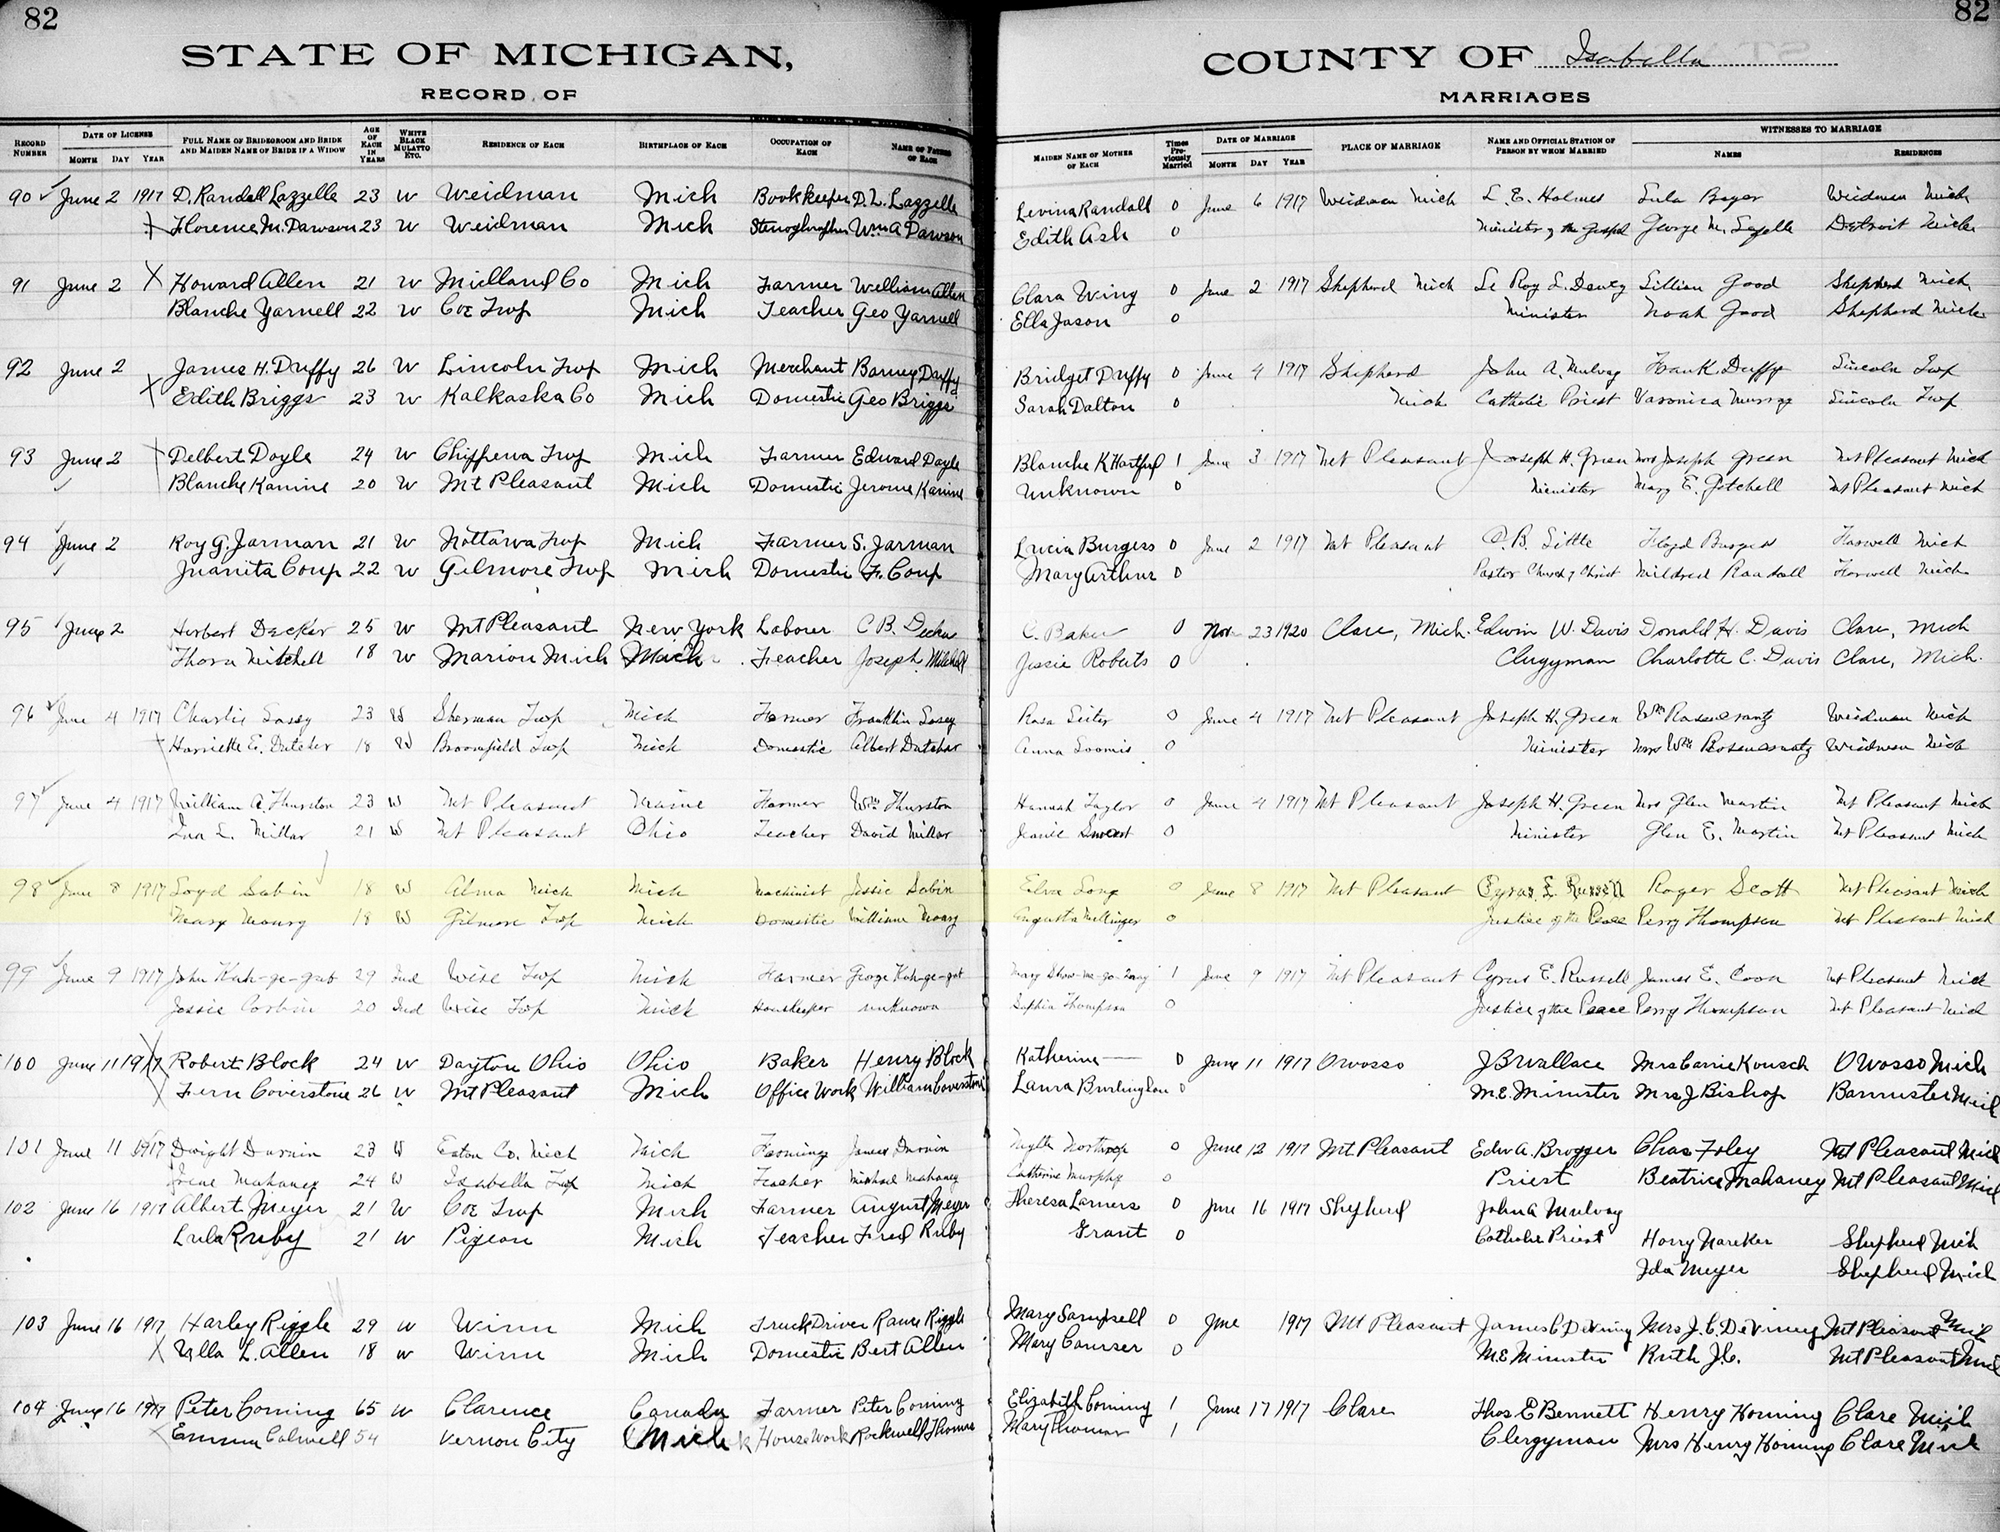 82
82
STATE OF MICHIGAN,
COUNTY OF Isabella
RECORD OF
MARRIAGES
RECORD NUMBER
DATE OF LICENSE
MONTH DAY YEAR
FULL NAME OF BRIDEGROOM AND BRIDE AND MAIDEN NAME OF BRIDE IF A WIDOW
AGE OF EACH IN YEARS
WHITE BLACK MULATTO ETC.
RESIDENCE OF EACH
BIRTHPLACE OF EACH
OCCUPATION OF EACH
NAME OF FATHER OF EACH
MAIDEN NAME OF MOTHER OF EACH
Times Previously Married
DATE OF MARRIAGE
MONTH DAY YEAR
PLACE OF MARRIAGE
NAME AND OFFICIAL STATION OF PERSON BY WHOM MARRIED
WITNESSES TO MARRIAGE
NAMES
RESIDENCES
90 June 2 1917 D. Randall Lazzelle 23 W Weidman Mich Bookkeeper D. L. Lazzelle Levina Randall 0 June 6 1917 Weidman Mich L. E. Holmes Lula Weidman Mich
Florence M. Dawson 23 W Weidman Mich Stenographer Wm A Dawson Edith Ash 0 Minister of the Gospel George M. Detroit Mich
91 June 2 Howard Allen 21 W Midland Co Mich Farmer William Allen Clara Wing 0 June 2 1917 Shepherd Mich Le Roy L. Dewey Lillian Good Shepherd Mich
Blanche Yarnell 22 W Coe Twp Mich Teacher Geo Yarnell Ella Jason 0 Minister Noah Good Shepherd Mich
92 June 2 James H. Duffy 26 W Lincoln Twp Mich Merchant Barney Duffy Bridget Duffy 0 June 4 1917 Shepherd John A. Mulvey Frank Duffy Lincoln Twp
Edith Briggs 23 W Kalkaska Co Mich Domestic Geo Briggs Sarah Dalton 0 Mich Catholic Priest Varonica Lincoln Twp
93 June 2 Delbert Doyle 24 W Chippewa Twp Mich Farmer Edward Doyle Blanche K 1 June 3 1917 Mt Pleasant Joseph H. Green Mrs Joseph Green Mt Pleasant Mich
Blanche Kanine 20 W Mt Pleasant Mich Domestic Jerome Kanine Unknown 0 Minister Mary E. Getchell Mt Pleasant Mich
94 June 2 Roy G. Jarman 21 W Nottawa Twp Mich Farmer S. Jarman Lucia Burgess 0 June 2 1917 Mt Pleasant C. B. Little Floyd Burgess Farwell Mich
Juanita Coup 22 W Gilmore Twp Mich Domestic F. Coup Mary Arthur 0 Pastor Church of Christ Mildred Randall Farwell Mich
95 June 2 Herbert Decker 25 W Mt Pleasant New York Laborer C B. Decker C. Baker 0 Nov 23 1920 Clare, Mich. Edwin W. Davis Donald H. Davis Clare, Mich
Thora Mitchell 18 W Marion Mich Mich Teacher Joseph Mitchell Jessie Roberts 0 Clergyman Charlotte C. Davis Clare, Mich.
96 June 4 1917 Charlie Losey 23 W Sherman Twp Mich Farmer Franklin Losey Rosa Seiter 0 June 4 1917 Mt Pleasant Joseph H. Green Wm Rosencrantz Weidman Mich
Harriette E. Dutcher 18 W Broomfield Twp Mich Domestic Albert Dutcher Anna Loomis 0 Minister Mrs Wm Rosencrantz Weidman Mich
97 June 4 1917 William A Thurston 23 W Mt Pleasant Maine Farmer Wm Thurston Hannah Taylor 0 June 4 1917 Mt Pleasant Joseph H. Green Mrs Glen Martin Mt Pleasant Mich
Ina L. Millar 21 W Mt Pleasant Ohio Teacher David Millar Jennie Sweet 0 Minister Glen E. Martin Mt Pleasant Mich
98 June 8 1917 Loyd Sabin 18 W Alma Mich Mich Machinist Jessie Sabin Elva Long 0 June 8 1917 Mt Pleasant Cyrus E. Russell Roger Scott Mt Pleasant Mich
Mary Mowry 18 W Gilmore Twp Mich Domestic William Mowry Augusta Mellinger 0 Justice of the Peace Perry Thompson Mt Pleasant Mich
99 June 9 1917 John Kah-ge-gab 29 Ind Wise Twp Mich Farmer George Kah-ge-gab Mary 1 June 9 1917 Mt Pleasant Cyrus E. Russell James E. Coon Mt Pleasant Mich
Jessie Corbin 20 Ind Wise Twp Mich Housekeeper unknown Sophia Thompson 0 Justice of the Peace Perry Thompson Mt Pleasant Mich
100 June 11 1917 Robert Block 24 W Dayton Ohio Ohio Baker Henry Block Katherine — 0 June 11 1917 Owosso J B Wallace Mrs Carrie Kousch Owosso Mich
Fern Coverstone 26 W Mt Pleasant Mich Office Work William Coverstone Laura Burlingham 0 M.E. Minister Mrs J Bishop Bannister Mich
101 June 11 1917 Dwight Durnin 23 W Eaton Co. Mich Mich Farming James Durnin Northrop 0 June 12 1917 Mt Pleasant Edw A. Brogger Chas Foley Mt Pleasant Mich
Irene Mahaney 24 W Isabella Twp Mich Teacher Michael Mahaney Catherine Murphy 0 Priest Beatrice Mahaney Mt Pleasant Mich
102 June 16 1917 Albert Meyer 21 W Coe Twp Mich Farmer August Meyer Theresa Larners 0 June 16 1917 Shepherd John A Mulvey
Lula Ruby 21 W Pigeon Mich Teacher Fred Ruby Grant 0 Catholic Priest Harry Nareker Shepherd Mich
Ida Meyer Shepherd Mich
103 June 16 1917 Harley Riggle 29 W Winn Mich Truck Driver Riggle Mary Sampsell 0 June 1917 Mt Pleasant James C DeViney Mrs J. C. DeViney Mt Pleasant Mich
Ulla L. Allen 18 W Winn Mich Domestic Bert Allen Mary Courser 0 M.E Minister Ruth J.C. Mt Pleasant Mich
104 June 16 1917 Peter Corning 65 W Clarence Canada Farmer Peter Corning Elizabeth Corning 1 June 17 1917 Clare Thos E Bennett Henry Horning Clare Mich
Emma Colwell 54 Vernon City Mich House Work Rockwell Thomas Mary Thomas 1 Clergyman Mrs Henry Horning Clare Mich